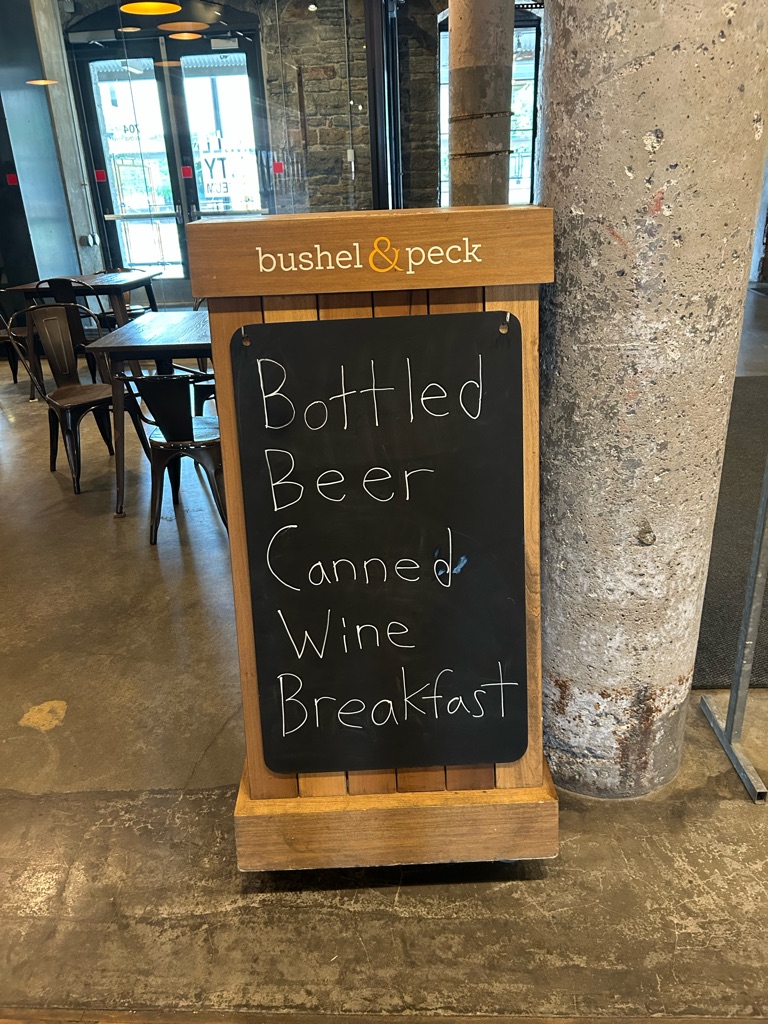 704
bushel & peck
Bottled
Beer
Canned
Wine
Breakfast